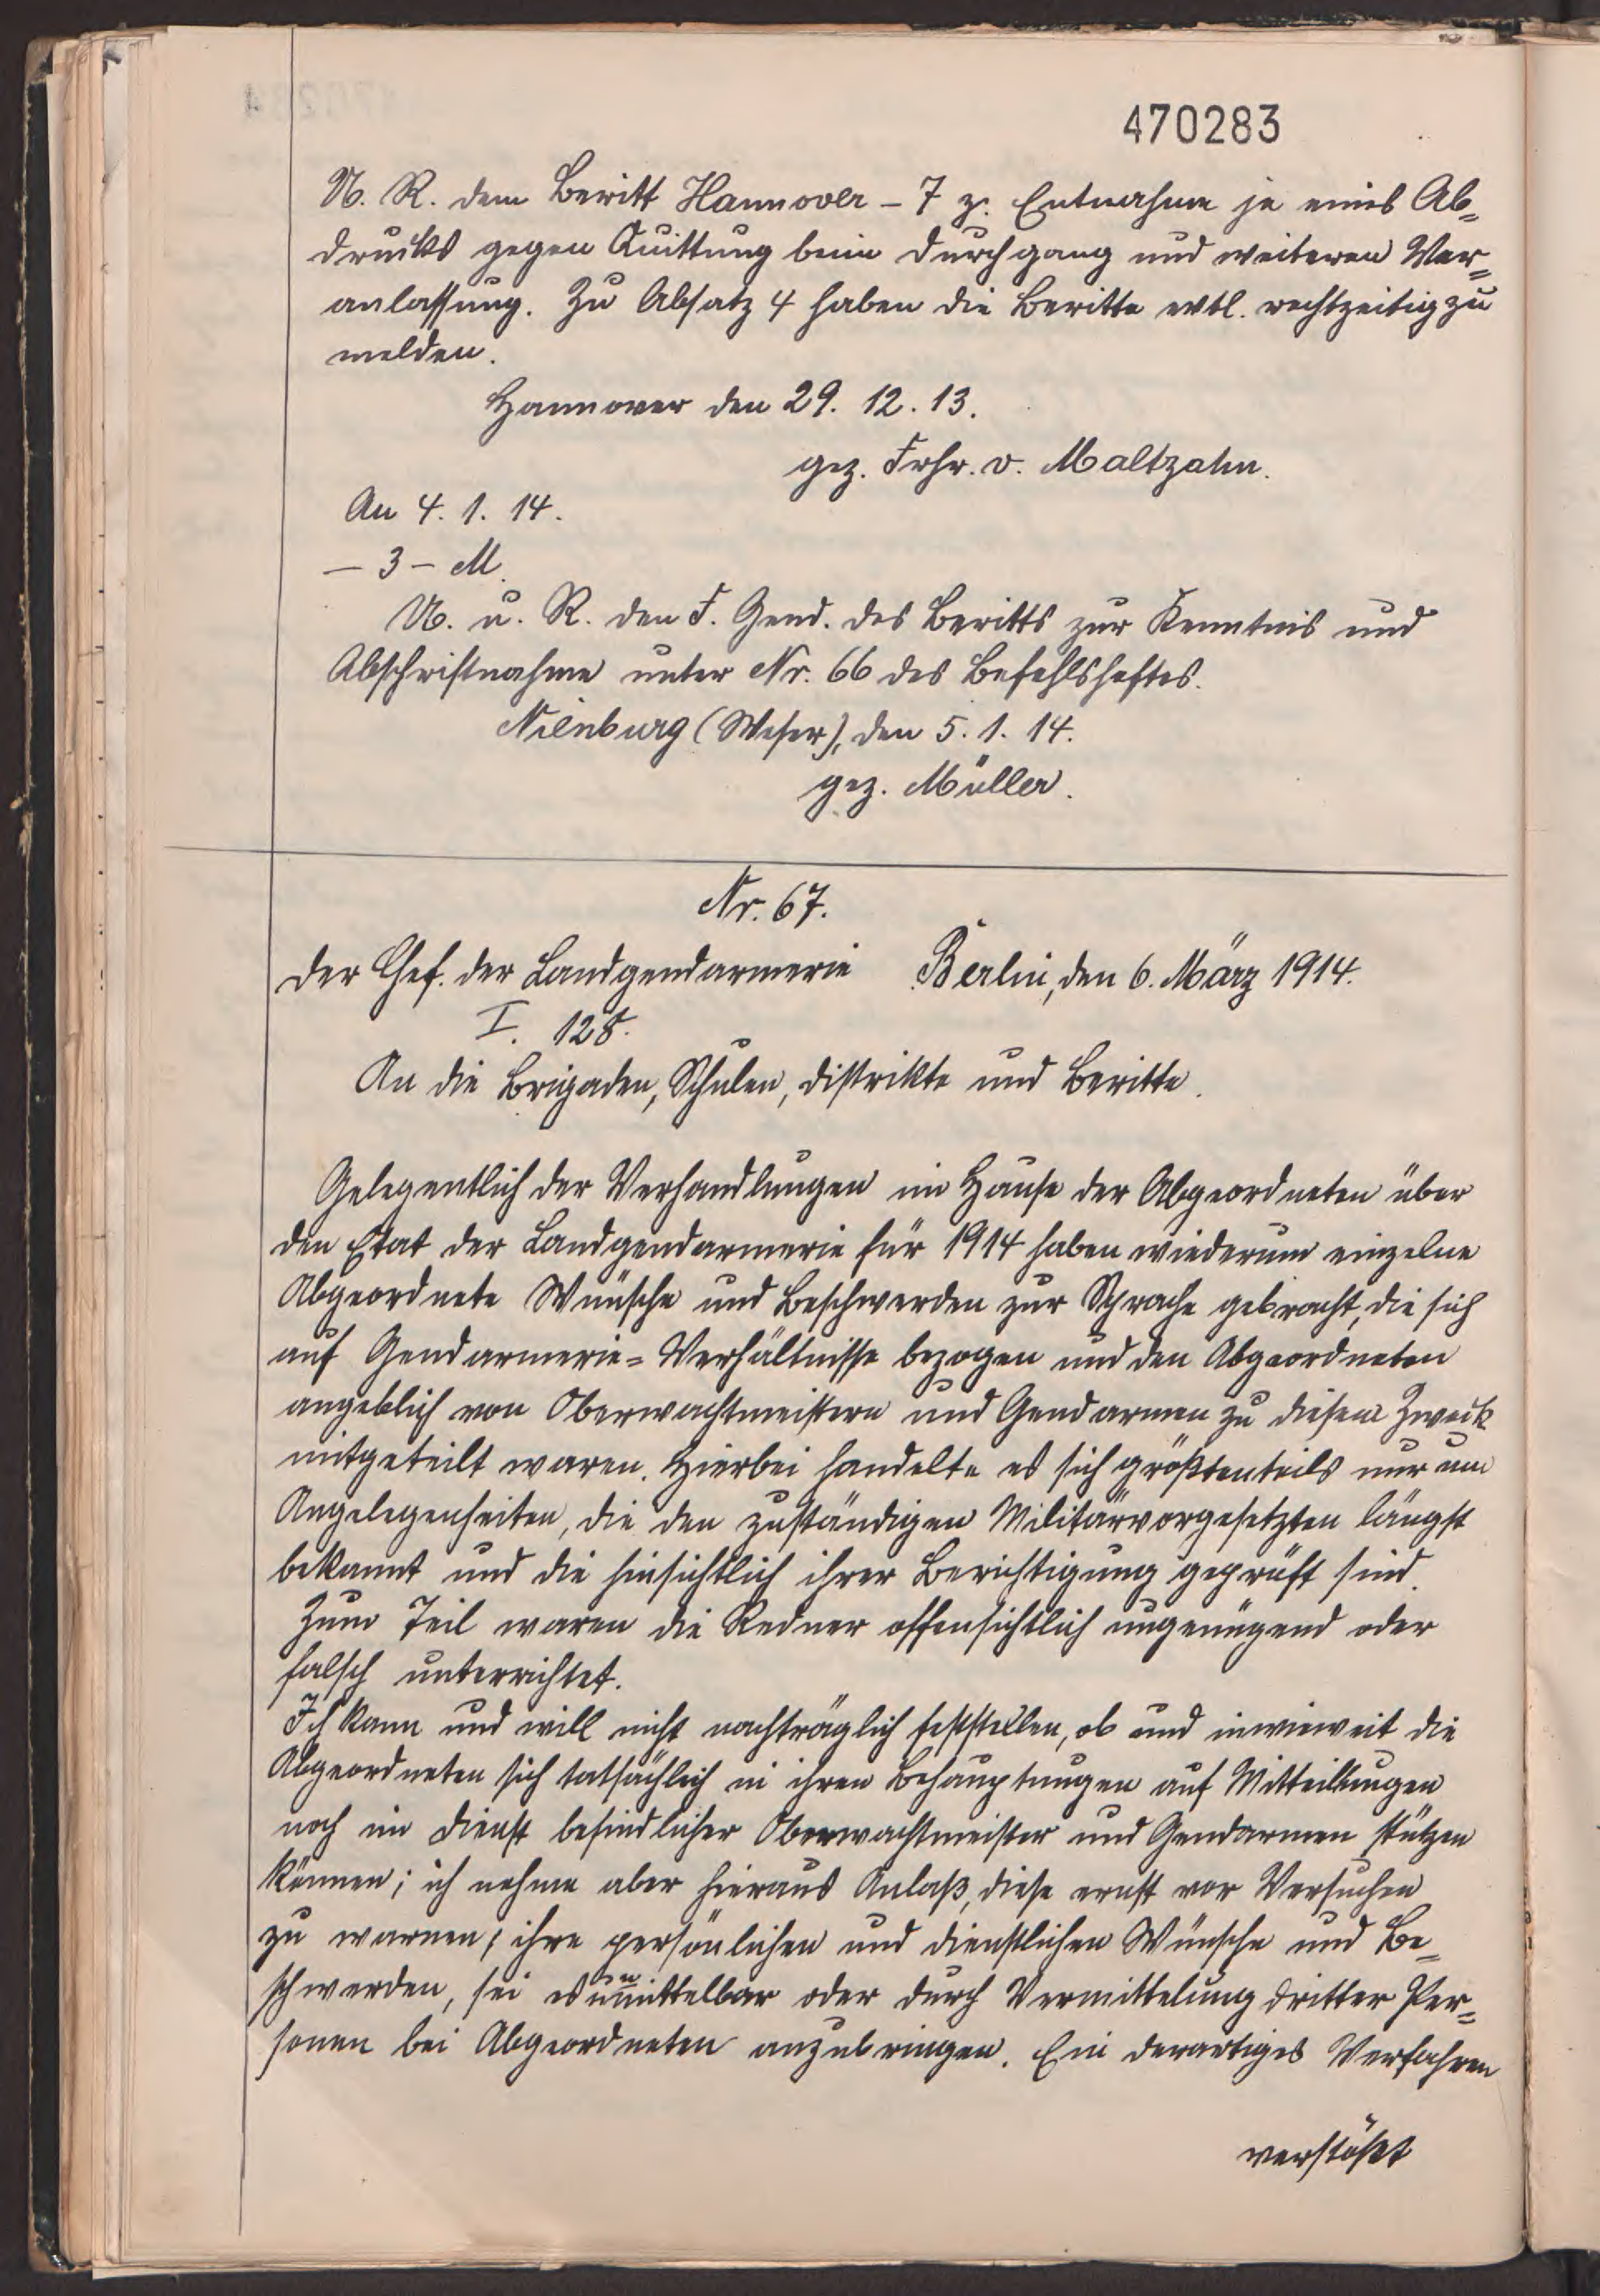 470283
U. R. dem Beritt Hannover – 7 z. Entnahme je eines Ab=
drucks gegen Quittung beim Durchgang und weiteren Ver=
anlassung. Zu Absatz 4 haben die Beritte evtl. rechtzeitig zu
melden.
Hannover den 29. 12. 13.
gez. Frhr. v. Maltzahn.
An 4. 1. 14.
– 3 – M.
U. u. R. den F. Gend. des Beritts zur Kenntnis und
Abschriftnahme unter Nr. 66 des Befehlsheftes.
Nienburg (Weser), den 5. 1. 14.
gez. Müller.
Nr. 67.
Der Chef. der Landgendarmerie Berlin, den 6. März 1914.
I. 128.
An die Brigaden, Schulen, Distrikte und Beritte.
Gelegentlich der Verhandlungen im Hause der Abgeordneten über
den Etat der Landgendarmerie für 1914 haben wiederum einzelne
Abgeordnete Wünsche und Beschwerden zur Sprache gebracht, die sich
auf Gendarmerie=Verhältnisse bezogen und den Abgeordneten
angeblich von Oberwachtmeistern und Gendarmen zu diesem Zweck
mitgeteilt waren. Hierbei handelte es sich größtenteils nur um
Angelegenheiten, die den zuständigen Militärvorgesetzten längst
bekannt und die hinsichtlich ihrer Berichtigung geprüft sind.
Zum Teil waren die Redner offensichtlich ungenügend oder
falsch unterrichtet.
Ich kann und will nicht nachträglich feststellen, ob und inwieweit die
Abgeordneten sich tatsächlich in ihren Behauptungen auf Mitteilungen
noch im Dienst befindlicher Oberwachtmeister und Gendarmen stützen
können; ich nehme aber hieraus Anlaß, diese ernst vor Versuchen
zu warnen, ihre persönlichen und dienstlichen Wünsche und Be=
schwerden, sei es unmittelbar oder durch Vermittelung dritter Per=
sonen bei Abgeordneten anzubringen. Ein derartiges Verfahren
verstößt